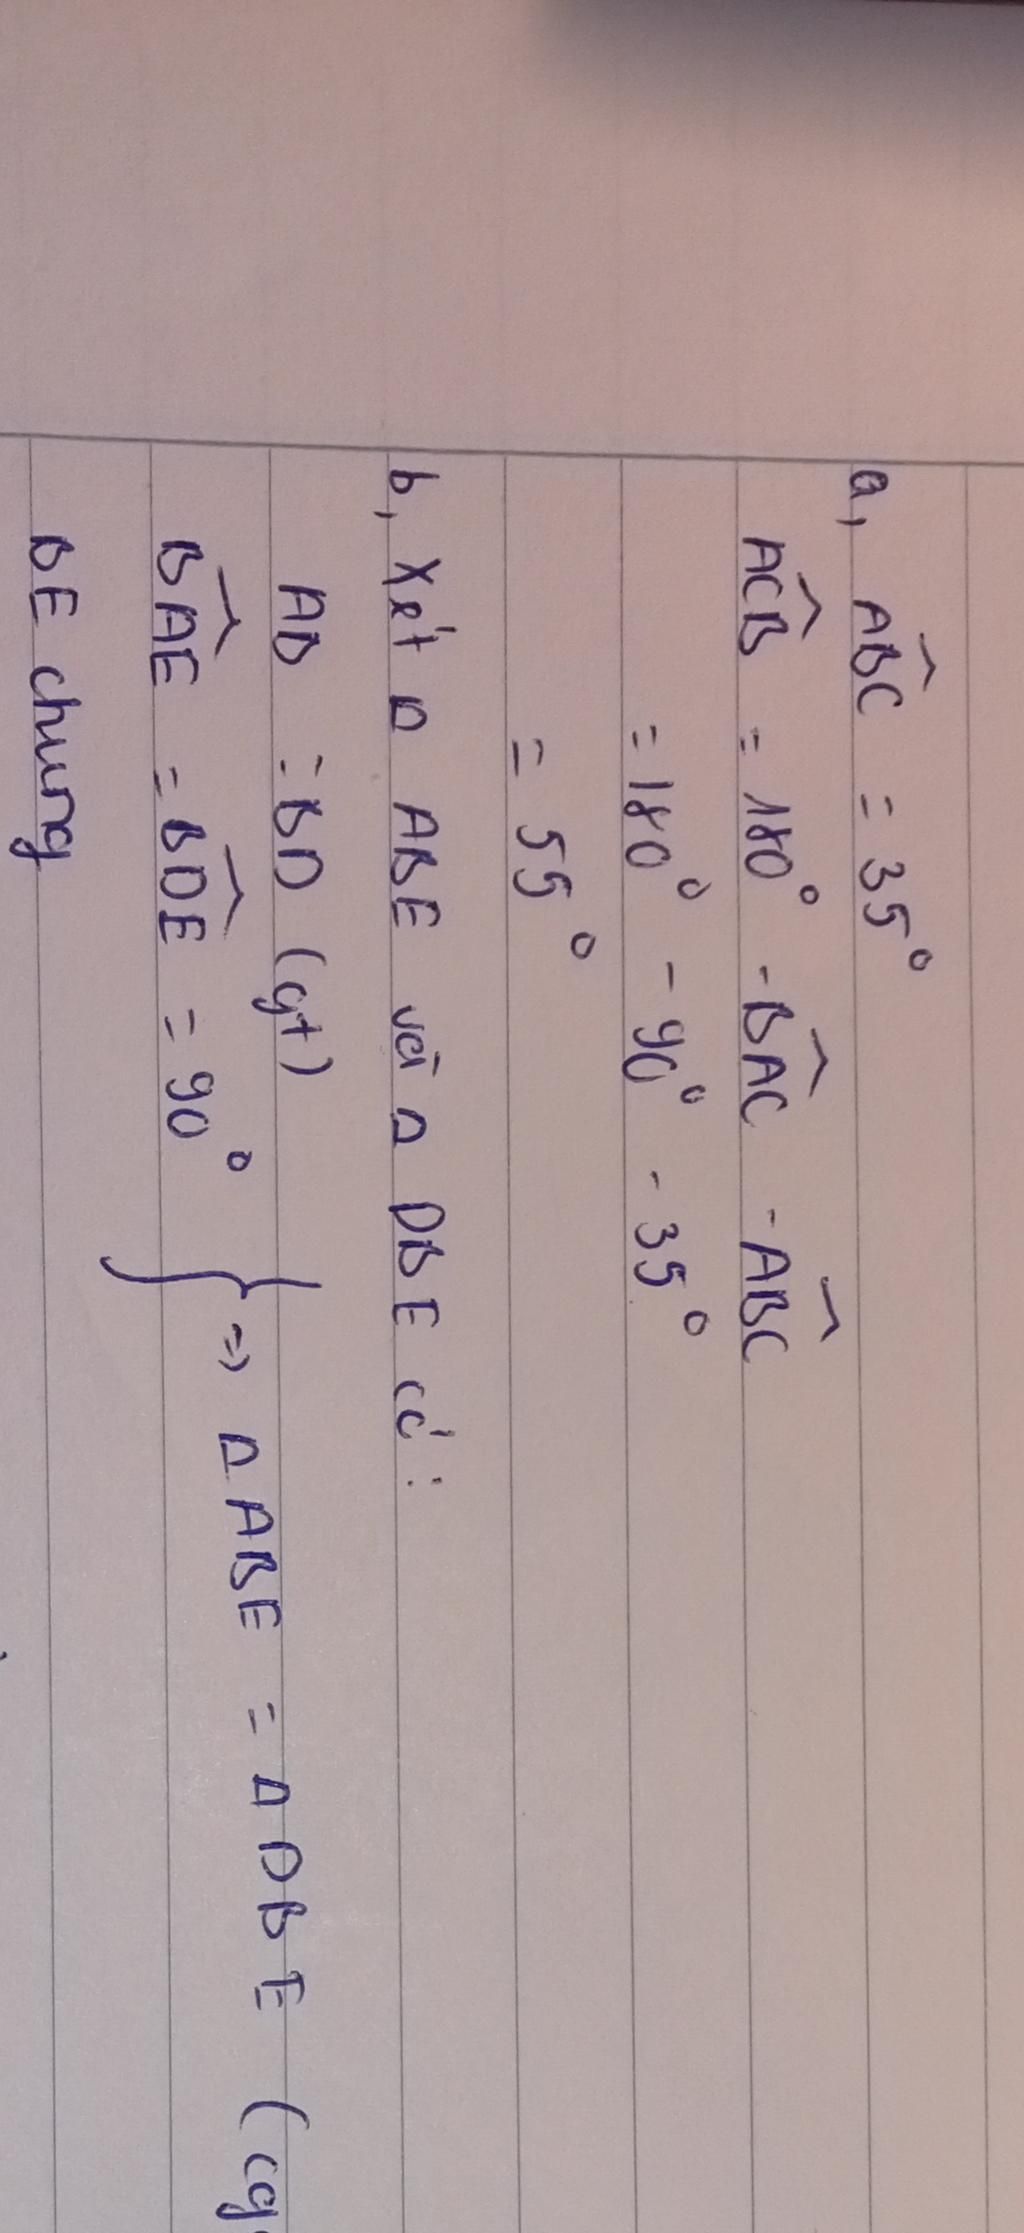 a, ABC = 35°
ACB = 180° - BAC - ABC
= 180° - 90° - 35°
= 55°
b, Xét Δ ABE và Δ DBE có :
AB = BD (gt)
BAE = BDE = 90° } => Δ ABE = Δ DBE (cg
BE chung